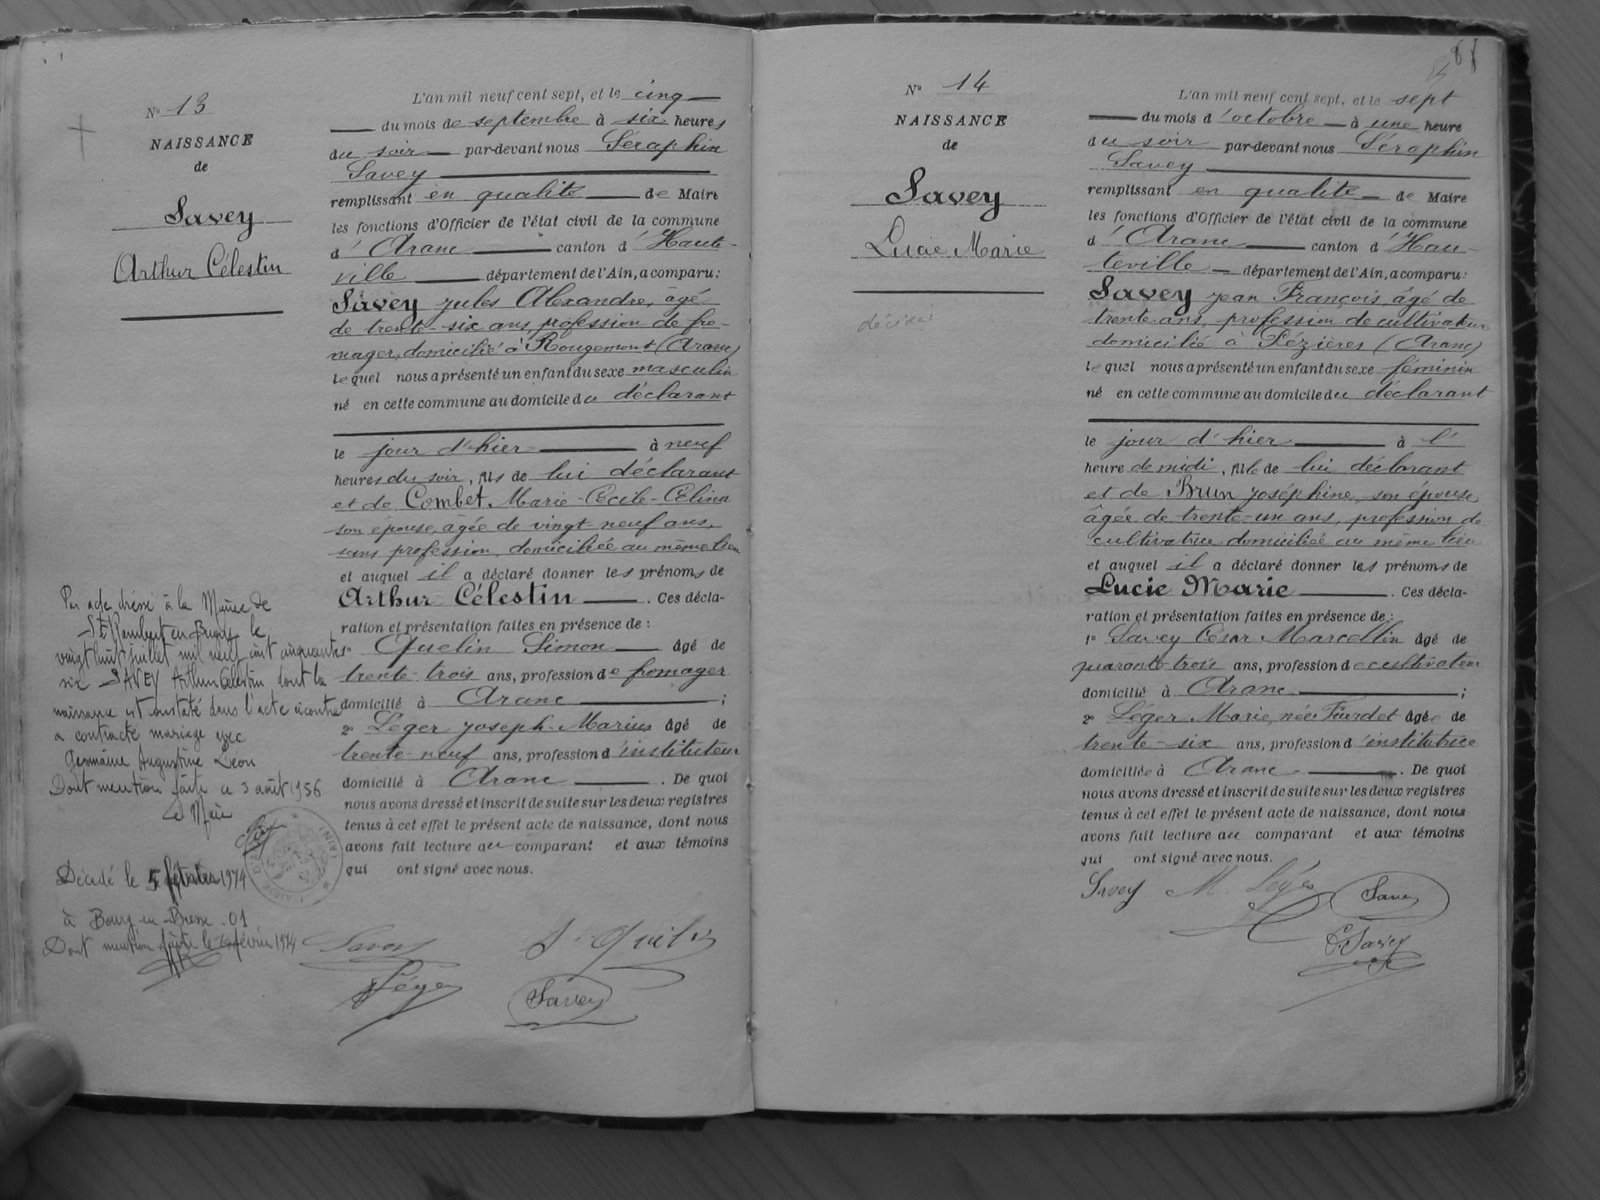 Nº 13
NAISSANCE
de
Savey
Arthur Célestin
L'an mil neuf cent sept, et le cinq
du mois de septembre à six heures
du soir par-devant nous Séraphin
Savey
remplissant en qualité de Maire
les fonctions d'Officier de l'état civil de la commune
d'Aranc canton d'Haute-
ville département de l'Ain, a comparu:
Savey Jules Alexandre, âgé
de trente-six ans, profession de fro-
mager, domicilié à Rougemont (Aranc)
lequel nous a présenté un enfant du sexe masculin
né en cette commune au domicile du déclarant
le jour d'hier à neuf
heures du soir, fils de lui déclarant
et de Combet, Marie-Cécile-Célina
son épouse, âgée de vingt-neuf ans,
sans profession, domiciliée au même lieu
et auquel il a déclaré donner les prénoms de
Arthur Célestin . Ces décla-
ration et présentation faites en présence de:
Quelin Simon âgé de
trente-trois ans, profession de fromager
domicilié à Aranc ;
2º Léger Joseph-Marius âgé de
trente-neuf ans, profession d'instituteur
domicilié à Aranc . De quoi
nous avons dressé et inscrit de suite sur les deux registres
tenus à cet effet le présent acte de naissance, dont nous
avons fait lecture au comparant et aux témoins
qui ont signé avec nous.
Par acte dressé à la Mairie de
St Rambert en Bugey le
vingt huit juillet mil neuf cent cinquante
six SAVEY Arthur Célestin dont la
naissance est constaté dans l'acte ci contre
a contracté mariage avec
Germaine Augustine Léon
Dont mention faite ce 3 août 1956
Le Maire
Décédé le 5 février 1974
à Bourg-en-Bresse .01
Dont mention faite le février 1974
Savey
Léger
Savey
Nº 14
NAISSANCE
de
Savey
Lucie Marie
L'an mil neuf cent sept, et le sept
du mois d'octobre à une heure
du soir par-devant nous Séraphin
Savey
remplissant en qualité de Maire
les fonctions d'Officier de l'état civil de la commune
d'Aranc canton d'Hau-
teville département de l'Ain, a comparu:
Savey Jean François, âgé de
trente ans, profession de cultivateur
domicilié à Pézières (Aranc)
lequel nous a présenté un enfant du sexe féminin
né en cette commune au domicile du déclarant
le jour d'hier à l'
heure de midi, fille de lui déclarant
et de Brun Joséphine, son épouse,
âgée de trente-un ans, profession de
cultivatrice domiciliée au même lieu
et auquel il a déclaré donner les prénoms de
Lucie Marie . Ces décla-
ration et présentation faites en présence de:
1º Savey César Marcellin âgé de
quarante-trois ans, profession de cultivateur
domicilié à Aranc ;
2º Léger Marie, née âgée de
trente-six ans, profession d'institutrice
domiciliée à Aranc . De quoi
nous avons dressé et inscrit de suite sur les deux registres
tenus à cet effet le présent acte de naissance, dont nous
avons fait lecture au comparant et aux témoins
qui ont signé avec nous.
Savey M. Léger Savey
C. Savey